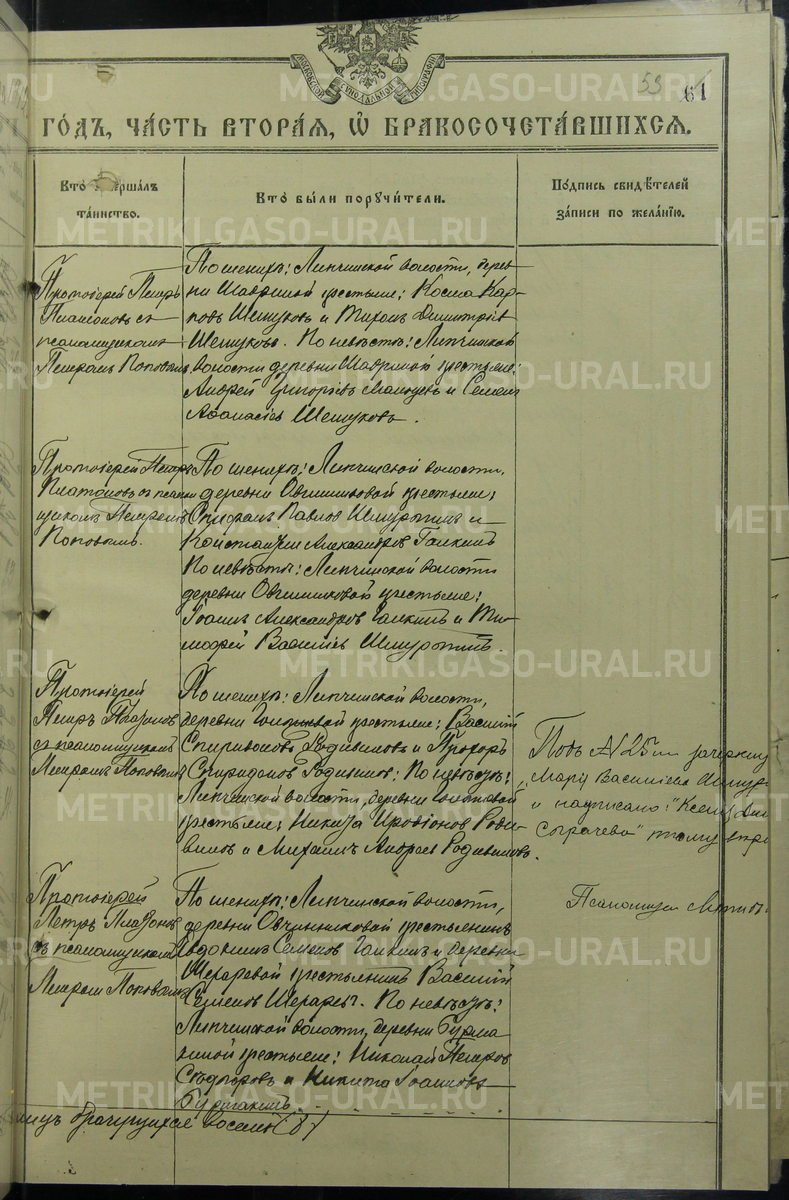 МОСКОВСКОЙ СѴНОДАЛЬНОЙ ТИПОГРАФІИ
59 61
ГОДЪ, ЧАСТЬ ВТОРАѦ, Ѡ БРАКОСОЧЕТАВШИХСѦ.
Кто совершалъ
таинство.
Кто были поручители.
Подпись свидѣтелей
записи по желанію.
Протоіерей Петръ
Платоновъ съ
псаломщикомъ
Петромъ Поповымъ
По женихѣ: Липчинской волости, дерев-
ни Шавриной крестьяне: Косма Кар-
повъ Шешуковъ и Тихонъ Димитріевъ
Шешуковъ. По невѣстѣ: Липчинской
волости деревни Шавриной крестьяне:
Андрей Григорьевъ и Семенъ
Аѳанасіевъ Шешуковъ.
Протоіерей Петръ
Платоновъ съ псалом
щикомъ Петромъ
Поповымъ.
По женихѣ: Липчинской волости,
деревни Овчинниковой крестьяне:
Павловъ и
Константинъ Александровъ Галкинъ
По невѣстѣ: Липчинской волости
деревни Овчинниковой крестьяне:
Іоаннъ Александровъ Галкинъ и Ти-
моѳей Василіевъ
Протоіерей
Петръ Платоновъ
съ псаломщикомъ
Петромъ Поповымъ
По женихѣ: Липчинской волости,
деревни крестьяне: Василій
Спиридоновъ Родивиловъ и Прохоръ
Спиридоновъ Родивиловъ: По невѣстѣ:
Липчинской волости, деревни
крестьяне: Никита Иродіоновъ Роди-
виловъ и Михаилъ Андреевъ Родивиловъ.
Подъ № 25 зачеркну
"Марія Василіева
и написано: "Ксенія
Сыгачева"
Псаломщикъ
Протоіерей
Петръ Платоновъ
съ псаломщикомъ
Петромъ Поповымъ
По женихѣ: Липчинской волости,
деревни Овчинниковой крестьянинъ
Евдокимъ Семеновъ Галкинъ и деревни
крестьянинъ Василій
Семеновъ По невѣстѣ:
Липчинской волости, деревни Бурма
киной крестьяне: Николай Петровъ
и Никита Іоанновъ
Бурмакинъ.
лицъ брачущихся восемь (8)
METRIKI.GASO-URAL.RU